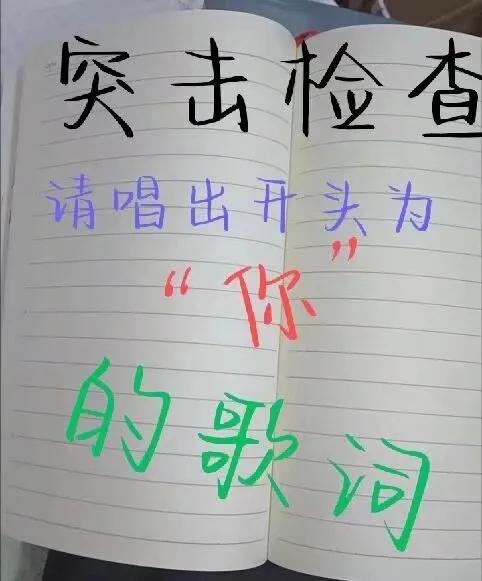 突击检查
请唱出开头为
“你”
的歌词